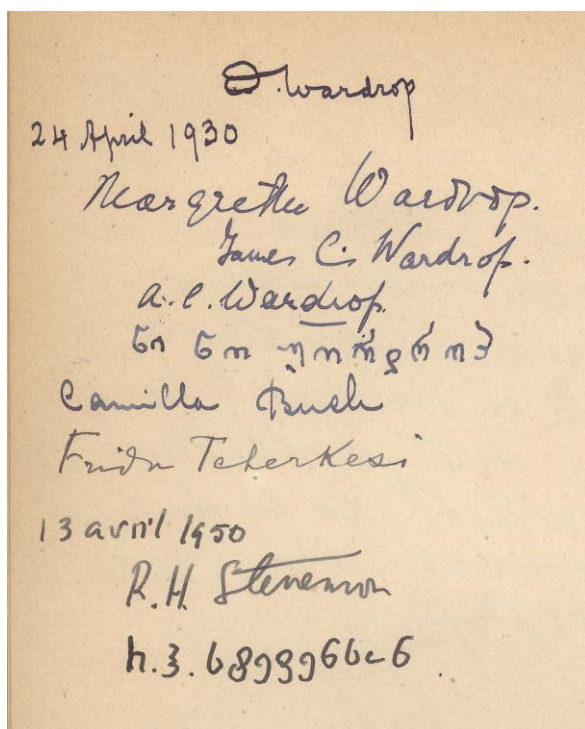 O. Wardrop
24 April 1930
Margrethe Wardrop.
James C. Wardrop.
A. C. Wardrop.
Camilla Bush
Frida Tcherkesi
13 avril 1950
R.H. Stevenson
რ.ჰ. სტევენსონ